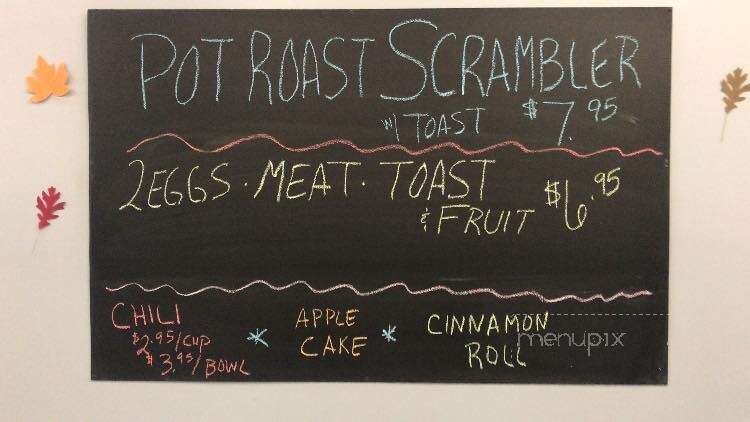 POT ROAST SCRAMBLER
w/ TOAST $7.95
2 EGGS · MEAT · TOAST
& FRUIT $6.95
CHILI
$2.95/CUP
$3.95/BOWL
* APPLE
CAKE *
CINNAMON
ROLL
menupix